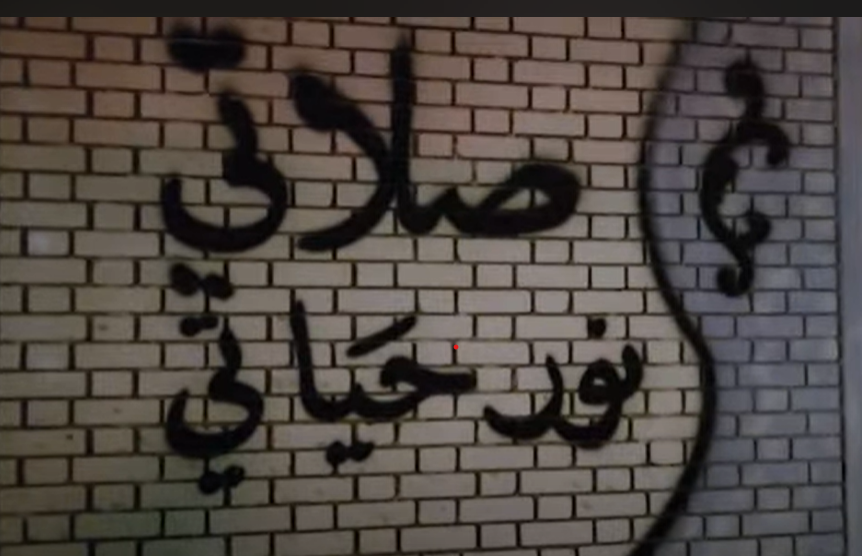 صلاتي
نور حَياتي